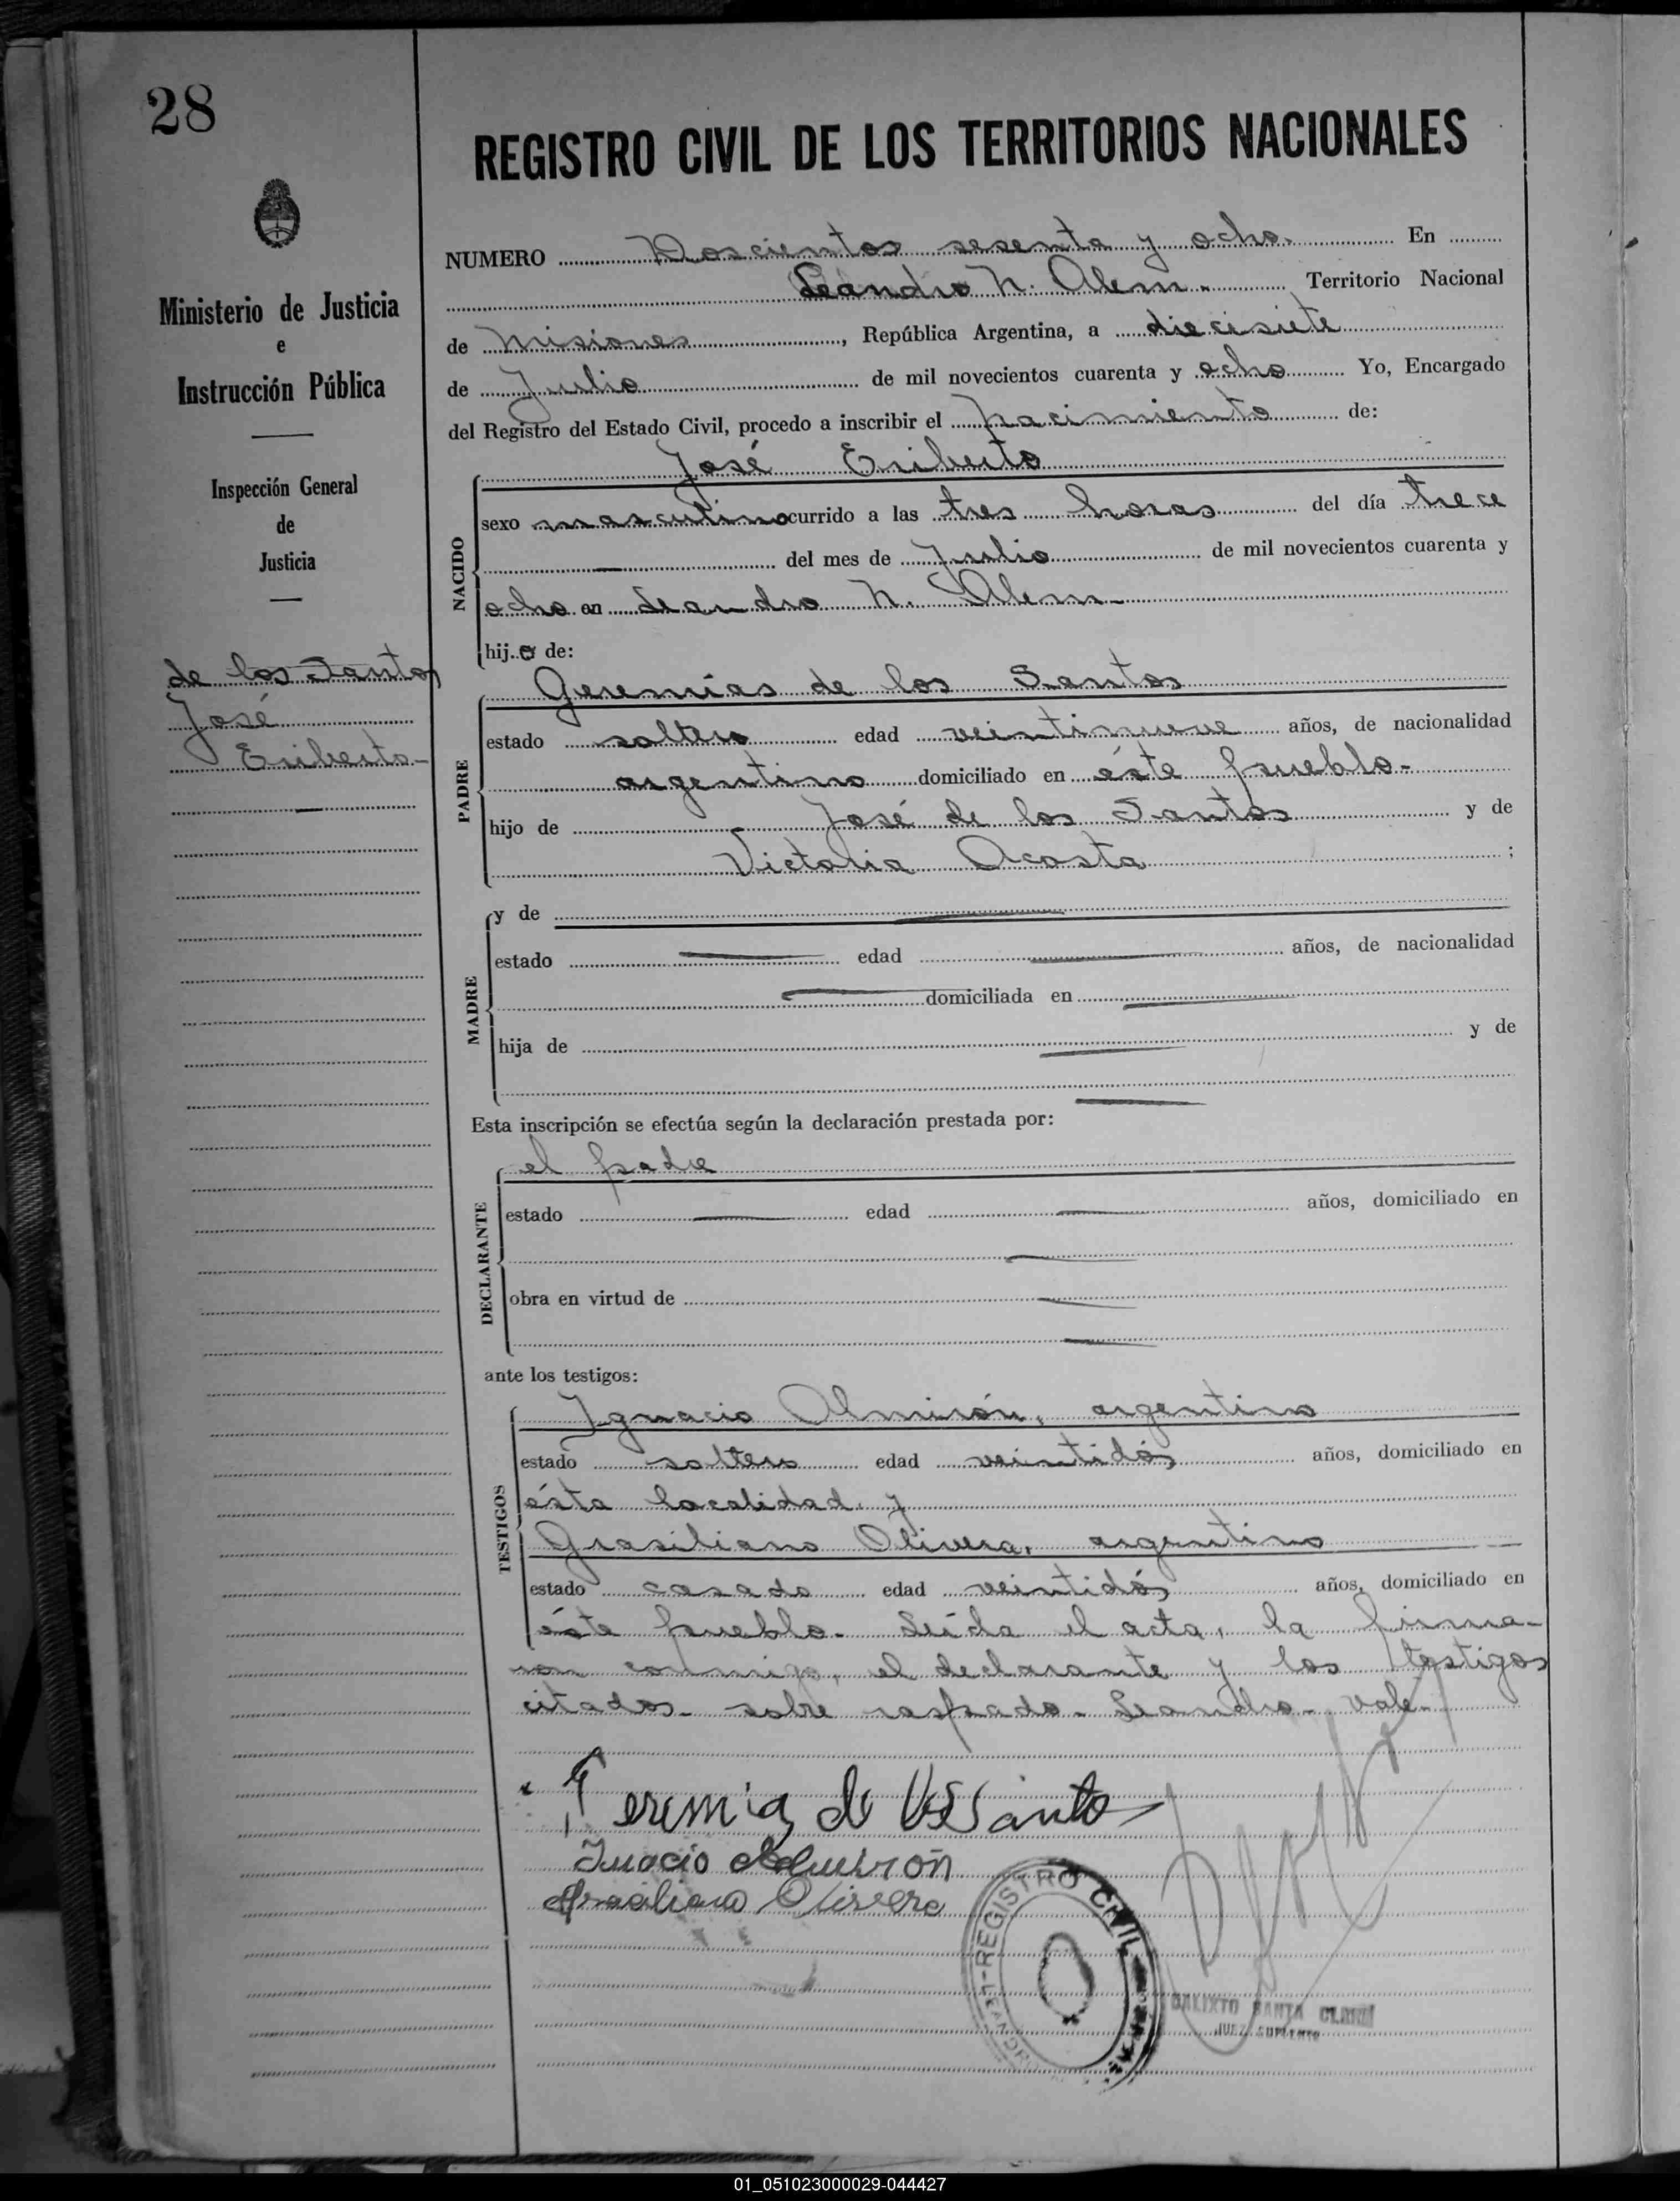 28
REGISTRO CIVIL DE LOS TERRITORIOS NACIONALES
Ministerio de Justicia
e
Instrucción Pública
Inspección General
de
Justicia
de los Santos
José
Eriberto-
NUMERO Doscientos sesenta y ocho. En
Leandro N. Alem. Territorio Nacional
de Misiones, República Argentina, a diecisiete
de Julio de mil novecientos cuarenta y ocho Yo, Encargado
del Registro del Estado Civil, procedo a inscribir el nacimiento de:
NACIDO
José Eriberto
sexo masculino ocurrido a las tres horas del día trece
— del mes de Julio de mil novecientos cuarenta y
ocho en Leandro N. Alem-
hijo de:
PADRE
Geremías de los Santos
estado soltero edad veintinueve años, de nacionalidad
argentino domiciliado en éste pueblo-
hijo de José de los Santos y de
Victoria Acosta ;
MADRE
y de —
estado — edad — años, de nacionalidad
— domiciliada en —
hija de — y de
—
Esta inscripción se efectúa según la declaración prestada por:
DECLARANTE
el padre
estado — edad — años, domiciliado en
—
obra en virtud de —
—
ante los testigos:
TESTIGOS
Ignacio Almirón, argentino
estado soltero edad veintidós años, domiciliado en
ésta localidad. y
Grasiliano Olivera, argentino
estado casado edad veintidós años, domiciliado en
éste pueblo- Leída el acta, la firma-
ron conmigo, el declarante y los testigos
citados- sobre raspado- Leandro- vale-
Geremias de los Santos
Ignacio Almirón
Grasiliano Olivera
REGISTRO CIVIL
LEANDRO
CALIXTO SANTA CLARA
JUEZ SUPLENTE
01_051023000029-044427